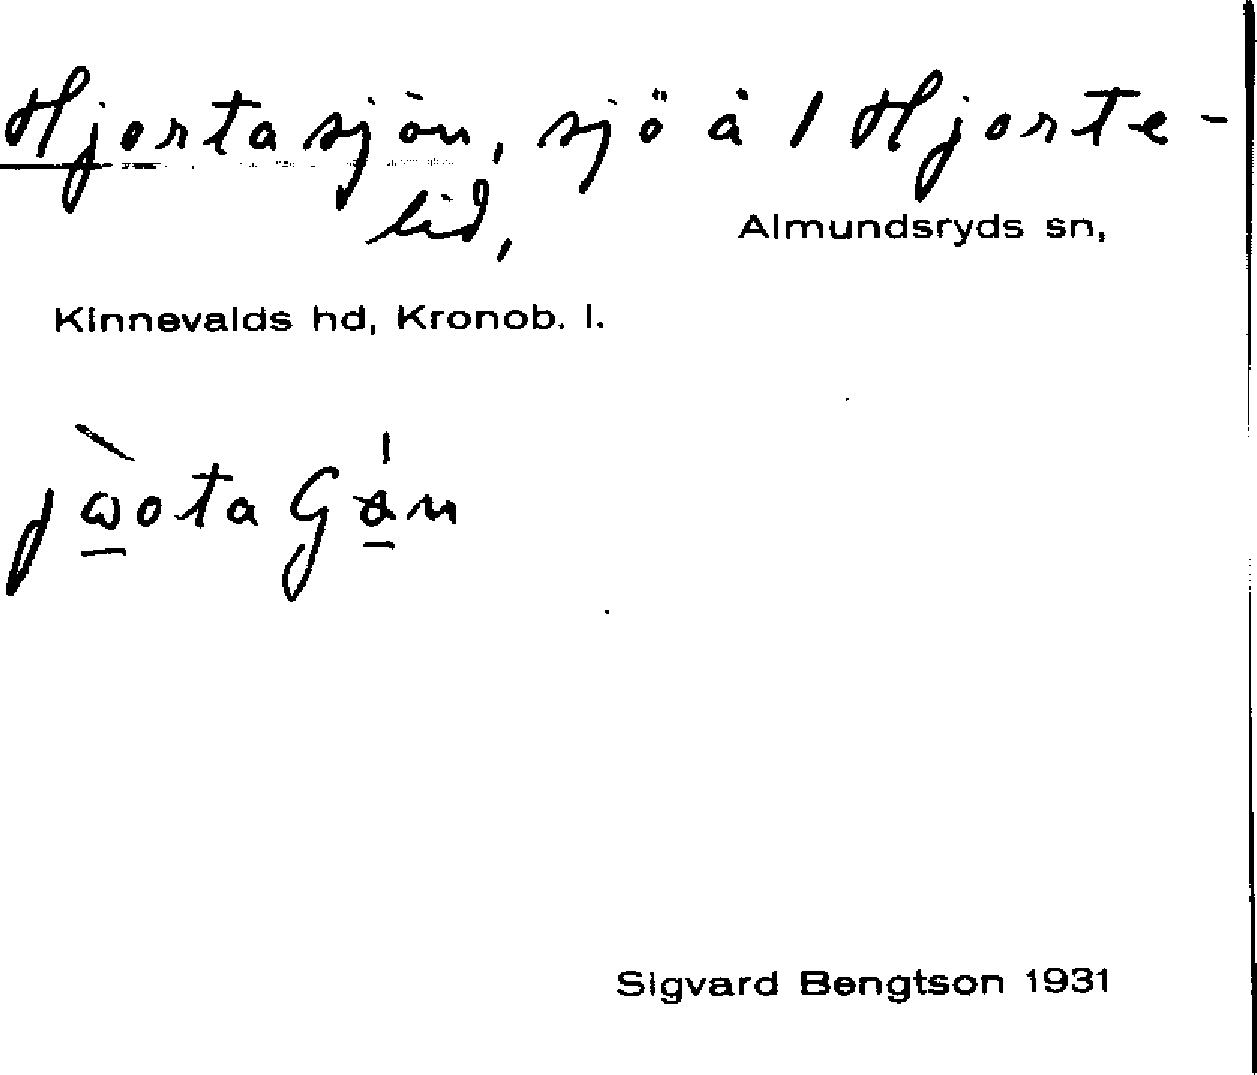 Hjortasjön, sjö å 1 Hjorte-
lid,
Almundsryds sn,
Kinnevalds hd, Kronob. l.
Sigvard Bengtson 1931